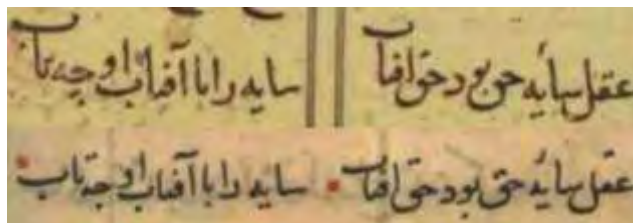 عقل سایهٔ حق بود حق آفتاب سایه را با آفتاب او چه تاب
عقل سایهٔ حق بود حق آفتاب سایه را با آفتاب او چه تاب